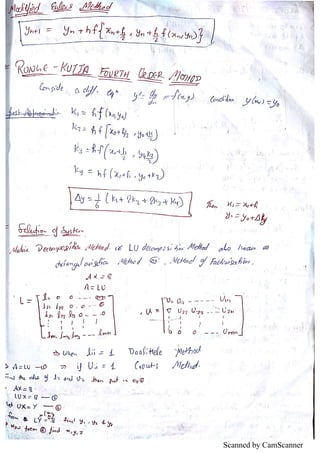 Modified Euler Method
yn+1 = yn + hf{xn+h/2, yn+h/2 f(xn,yn)}
RUNGE-KUTTA FOURTH ORDER METHOD
Consider a diff. eqn y' = dy/dx = f(x,y) condition y(x0) = y0
K1 = hf(x0,y0)
K2 = hf(x0+h/2, y0+k1/2)
K3 = hf(x0+h/2, y0+k2/2)
K4 = hf(x0+h, y0+k3)
Δy = 1/6 (k1+2k2+2k3+k4) Then x1 = x0+h
y1 = y0+Δy
Solution of System
Matrix Decomposition Method or LU decomposition Method also known as
triangularization Method or Method of Factorisation.
AX = B
A = LU
L = , U =
when lii = 1 Doolittle Method
A = LU if Uii = 1 Crout's Method.
Find the value of L and U, then put in eq
AX = B
LUX = B
Let UX = Y
from LY = B find y1, y2 & y3
Now from find x,y,z
Scanned by CamScanner